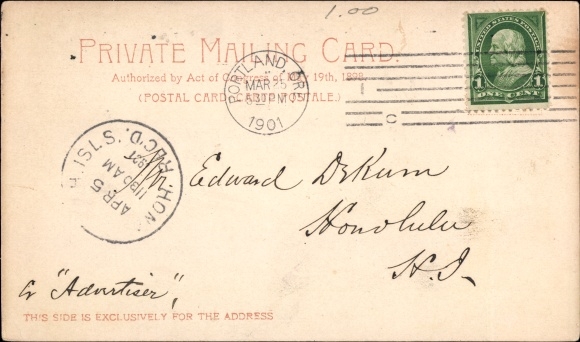 1.00
UNITED STATES POSTAGE
1 1
ONE CENT
PRIVATE MAILING CARD.
Authorized by Act of Congress of May 19th, 1898.
(POSTAL CARD-CARTE POSTALE.)
PORTLAND, OR.
MAR 25
5 30 PM
1901
1
C
HON. H. ISLS. REC'D.
APR 5
11 30 AM
Edward DeKum
Honolulu
H. I.
"Advertiser",
THIS SIDE IS EXCLUSIVELY FOR THE ADDRESS